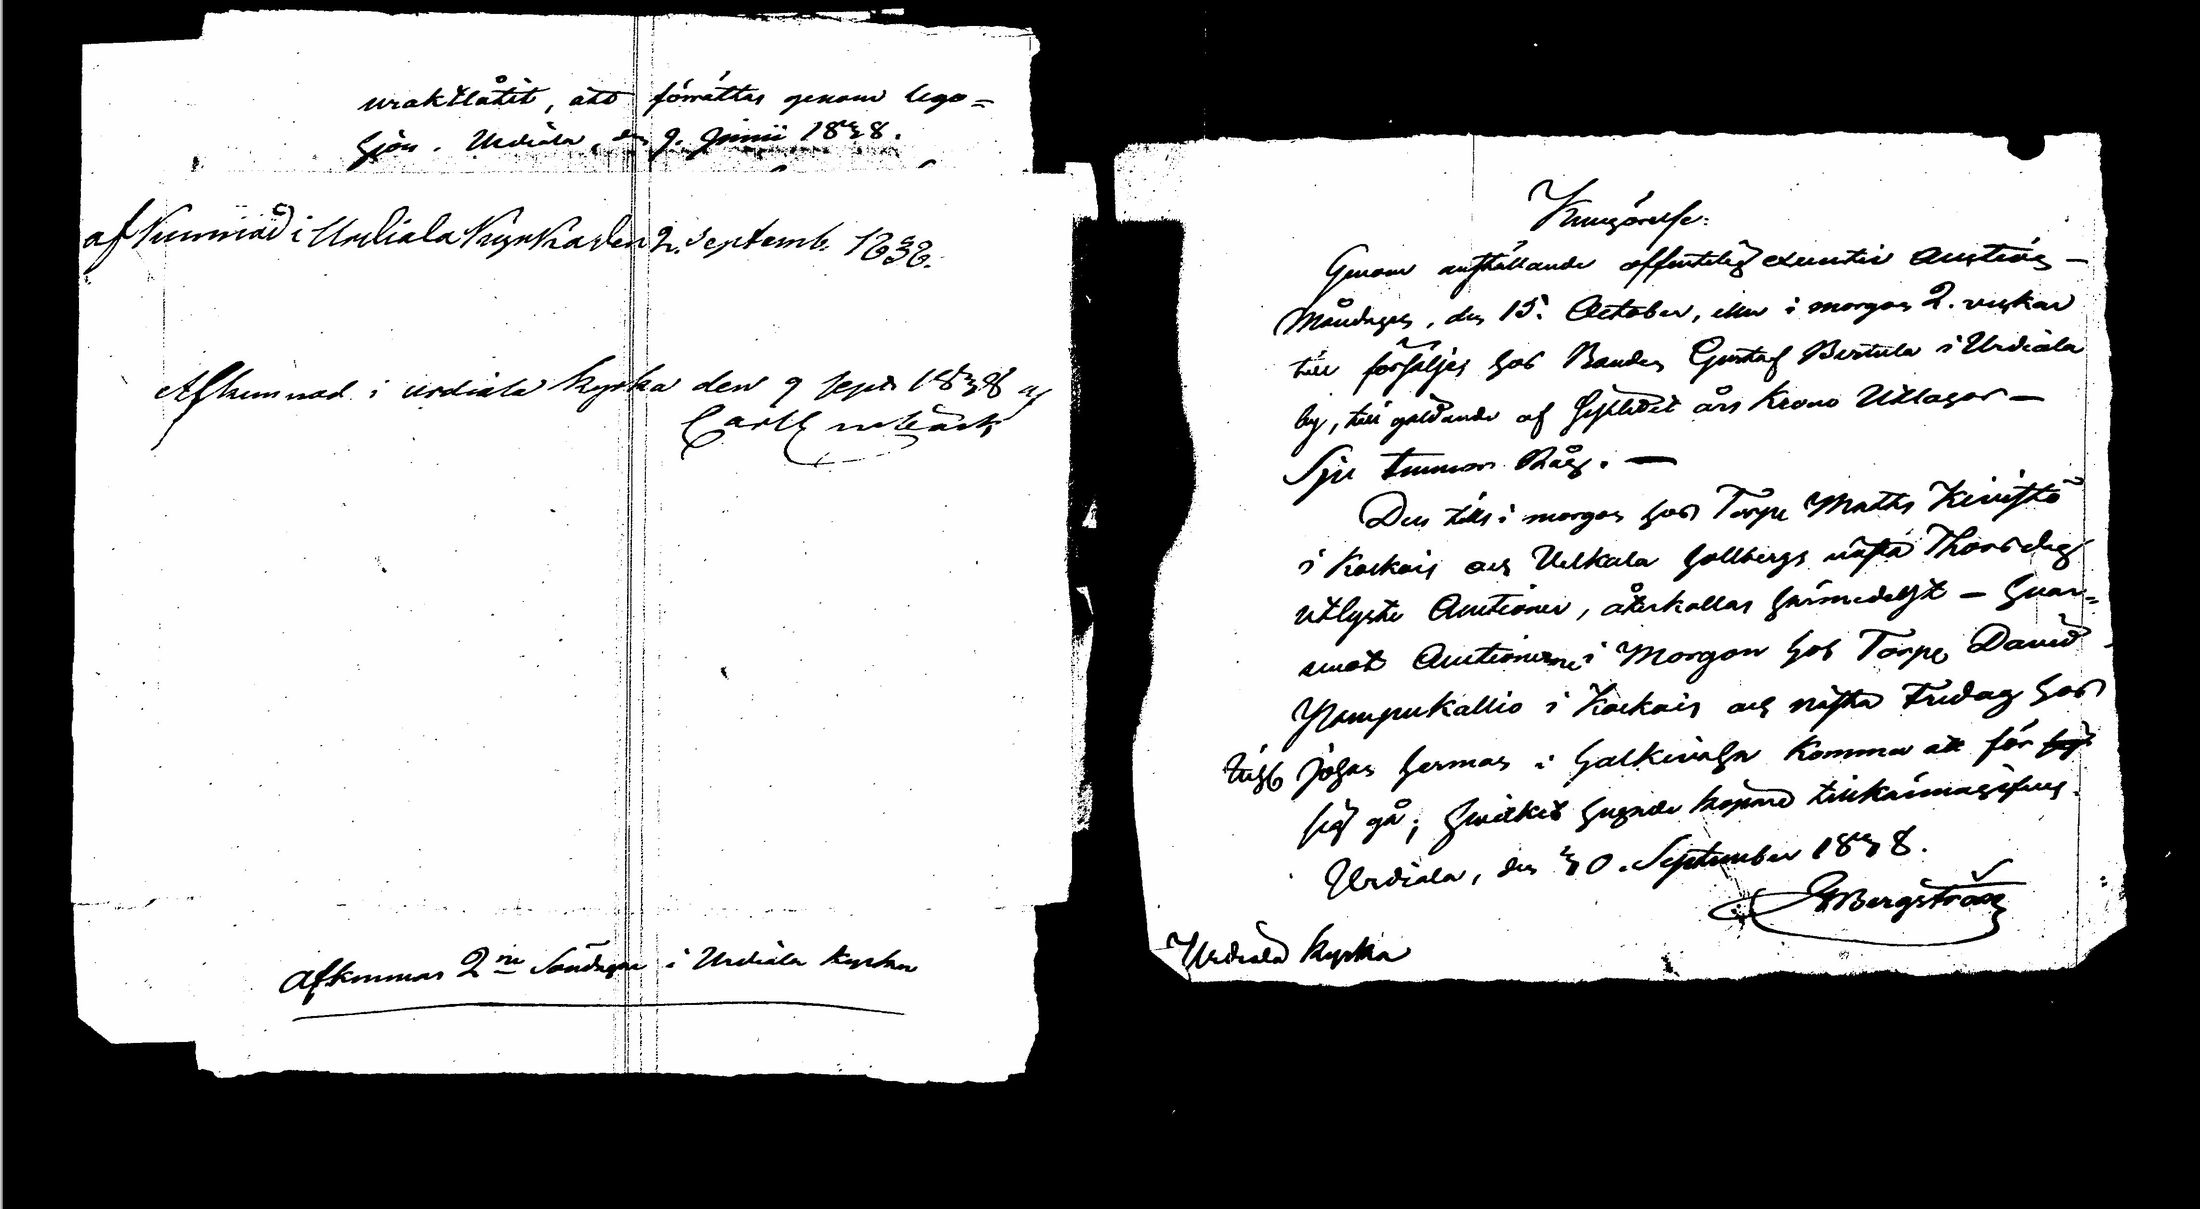 uraktlåtit, att förrättas genom lego=
hjon. Urdiala, den 9. Junii 1838.
afkunnad i Urdiala Kyrka den 2. Septemb. 1838.
Afkunnad i urdiala kyrka den 9 Sept 1838 af
Carl
Afkunnas 2ne Söndagar i Urdiala kyrka
Kungörelse:
Genom anställande offentelig executiv Auction
Måndagen, den 15. October, eller i morgon 2. veckor
till försäljes hos Bonden Gustaf Bertula i Urdiala
by, till gäldande af sistledit års Krono Utlagor –
Sju tunnor Råg. –
Den till i morgon hos Torp. Matts Kivistö
i Kockois och Uelkala hollbergs nästa Thorsdag
utlyste Auctioner, återkallas härmedelst – hvar=
emot Auctionerne i Morgon hos Torp. David
Pampukallio i Kockois och nästa Fredag hos
Johan Herman i Halkivaha komma att för
sig gå; hwilket hugade köpare tillkännagifves.
Urdiala, den 30. September 1838.
GBergström
Urdiala kyrka